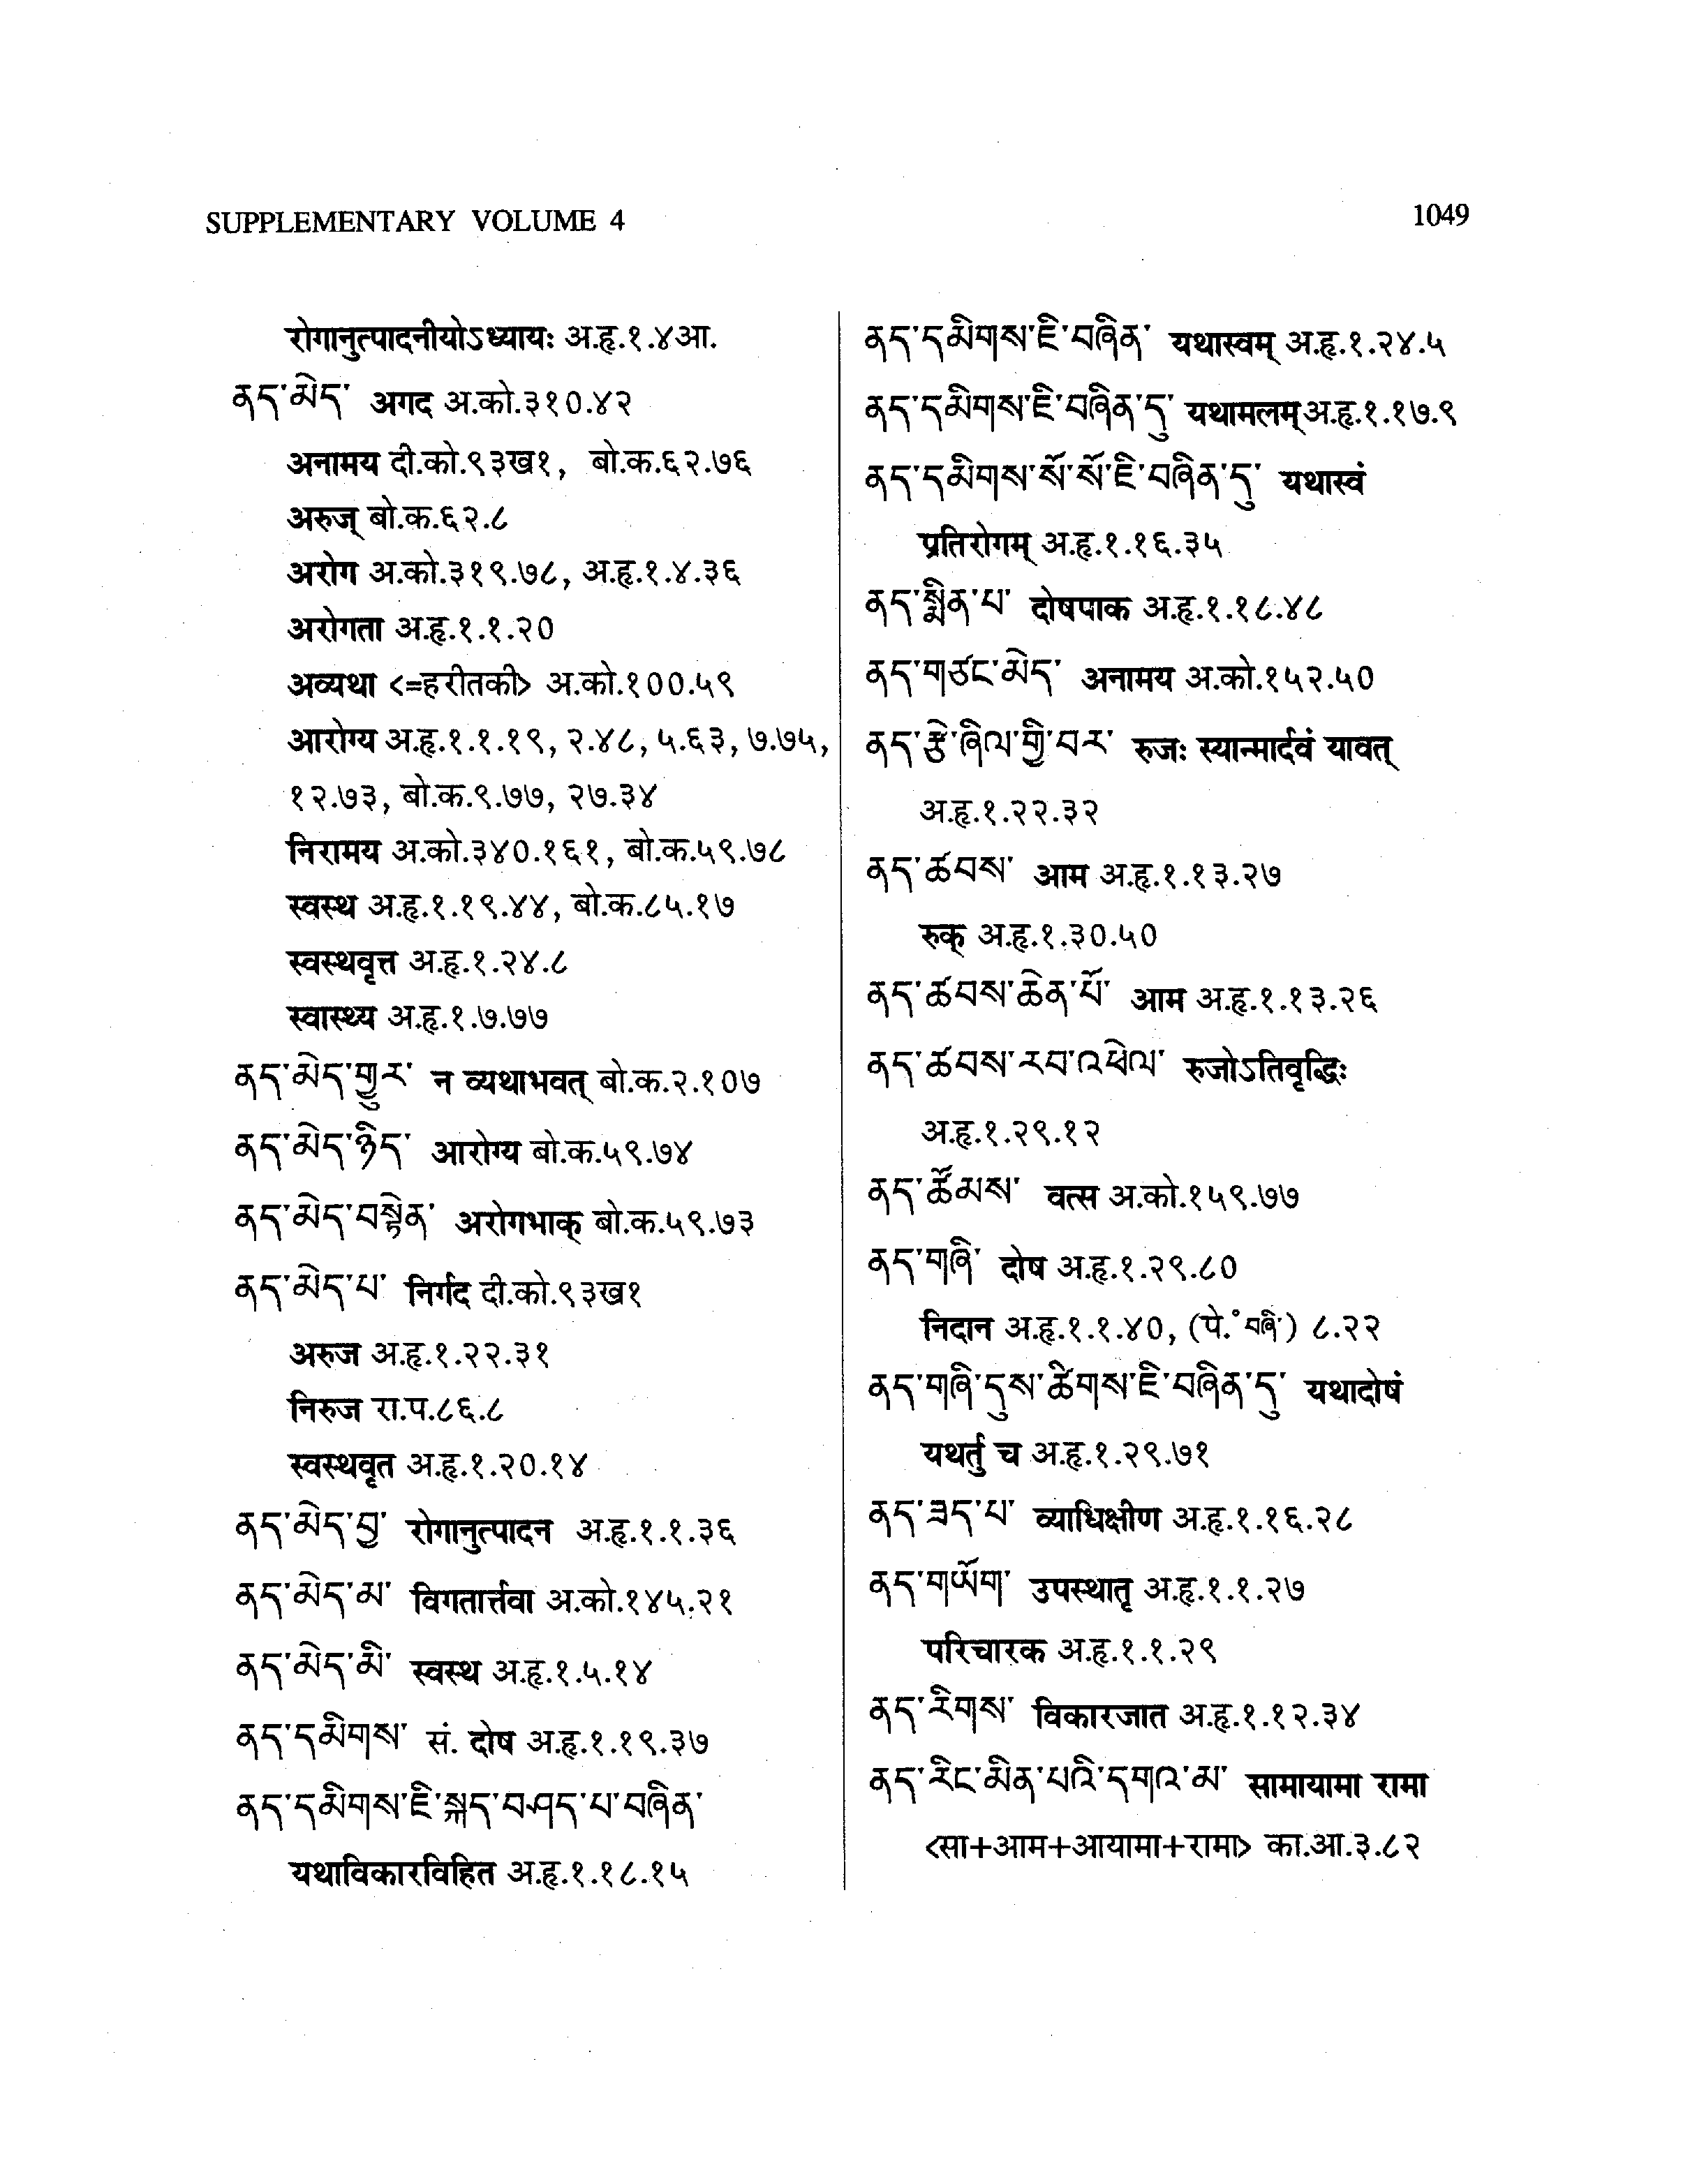 SUPPLEMENTARY VOLUME 4
1049
रोगानुत्पादनीयोऽध्यायः अ.हृ.१.४आ.
ནད་མེད་ अगद अ.को.३१०.४२
अनामय दी.को.९३ख१, बो.क.६२.७६
अरुज् बो.क.६२.८
अरोग अ.को.३१९.७८, अ.हृ.१.४.३६
अरोगता अ.हृ.१.१.२०
अव्यथा <=हरीतकी> अ.को.१००.५९
आरोग्य अ.हृ.१.१.१९, २.४८, ५.६३, ७.७५,
१२.७३, बो.क.९.७७, २७.३४
निरामय अ.को.३४०.१६१, बो.क.५९.७८
स्वस्थ अ.हृ.१.१९.४४, बो.क.८५.१७
स्वस्थवृत्त अ.हृ.१.२४.८
स्वास्थ्य अ.हृ.१.७.७७
ནད་མེད་གྱུར་ न व्यथाभवत् बो.क.२.१०७
ནད་མེད་ཉིད་ आरोग्य बो.क.५९.७४
ནད་མེད་བསྟེན་ अरोगभाक् बो.क.५९.७३
ནད་མེད་པ་ निर्गद दी.को.९३ख१
अरुज अ.हृ.१.२२.३१
निरुज रा.प.८६.८
स्वस्थवृत अ.हृ.१.२०.१४
ནད་མེད་བྱ་ रोगानुत्पादन अ.हृ.१.१.३६
ནད་མེད་མ་ विगतार्त्तवा अ.को.१४५.२१
ནད་མེད་མི་ स्वस्थ अ.हृ.१.५.१४
ནད་དམིགས་ सं. दोष अ.हृ.१.१९.३७
ནད་དམིགས་ཇི་སྐད་བཤད་པ་བཞིན་
यथाविकारविहित अ.हृ.१.१८.१५
ནད་དམིགས་ཇི་བཞིན་ यथास्वम् अ.हृ.१.२४.५
ནད་དམིགས་ཇི་བཞིན་དུ་ यथामलम् अ.हृ.१.१७.९
ནད་དམིགས་སོ་སོ་ཇི་བཞིན་དུ་ यथास्वं
प्रतिरोगम् अ.हृ.१.१६.३५
ནད་སྨིན་པ་ दोषपाक अ.हृ.१.१८.४८
ནད་གཙང་མེད་ अनामय अ.को.१५२.५०
ནད་རྩེ་ཞིལ་གྱི་བར་ रुजः स्यान्मार्दवं यावत्
अ.हृ.१.२२.३२
ནད་ཚབས་ आम अ.हृ.१.१३.२७
रुक् अ.हृ.१.३०.५०
ནད་ཚབས་ཆེན་པོ་ आम अ.हृ.१.१३.२६
ནད་ཚབས་རབ་འཕེལ་ रुजोऽतिवृद्धिः
अ.हृ.१.२९.१२
ནད་ཚོམས་ वत्स अ.को.१५९.७७
ནད་གཞི་ दोष अ.हृ.१.२९.८०
निदान अ.हृ.१.१.४०, (पे.ॅ བཞི་) ८.२२
ནད་གཞི་དུས་ཚིགས་ཇི་བཞིན་དུ་ यथादोषं
यथर्तु च अ.हृ.१.२९.७१
ནད་ཟད་པ་ व्याधिक्षीण अ.हृ.१.१६.२८
ནད་གཡོག་ उपस्थातृ अ.हृ.१.१.२७
परिचारक अ.हृ.१.१.२९
ནད་རིགས་ विकारजात अ.हृ.१.१२.३४
ནད་རིང་མིན་པའི་དགའ་མ་ सामायामा रामा
<सा+आम+आयामा+रामा> का.आ.३.८२